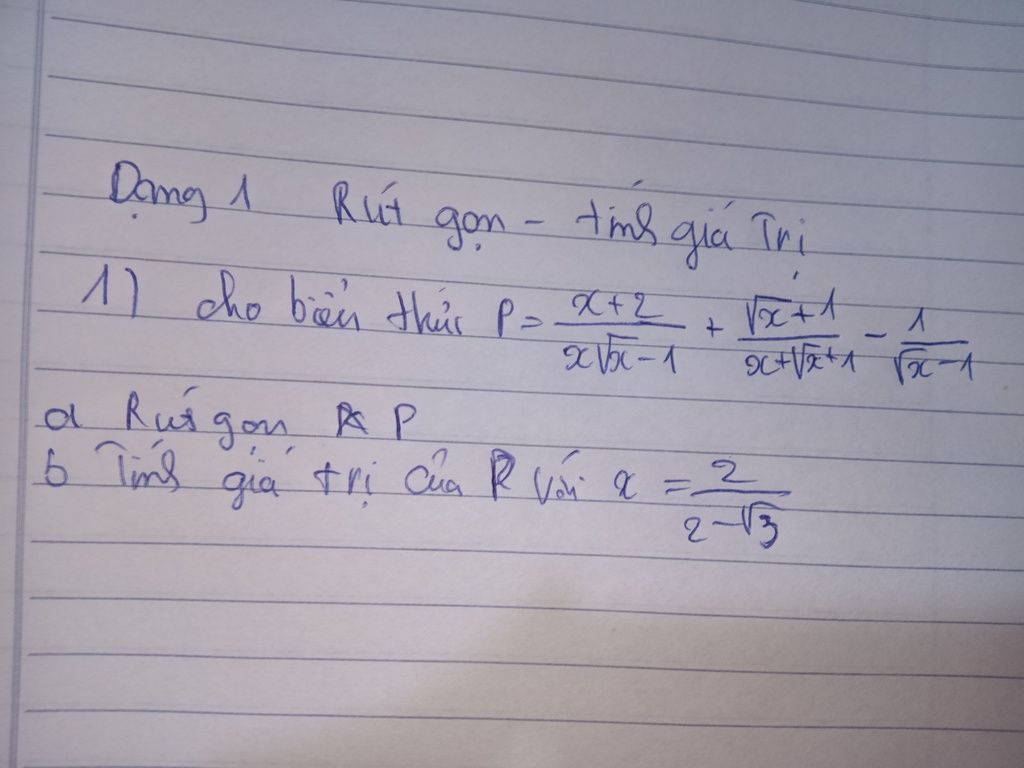 Dạng 1 Rút gọn - tính giá Trị
1) cho biểu thức P = \frac{x+2}{x\sqrt{x}-1} + \frac{\sqrt{x}+1}{x+\sqrt{x}+1} - \frac{1}{\sqrt{x}-1}
a Rút gọn P
b Tính giá trị của P với x = \frac{2}{2-\sqrt{3}}